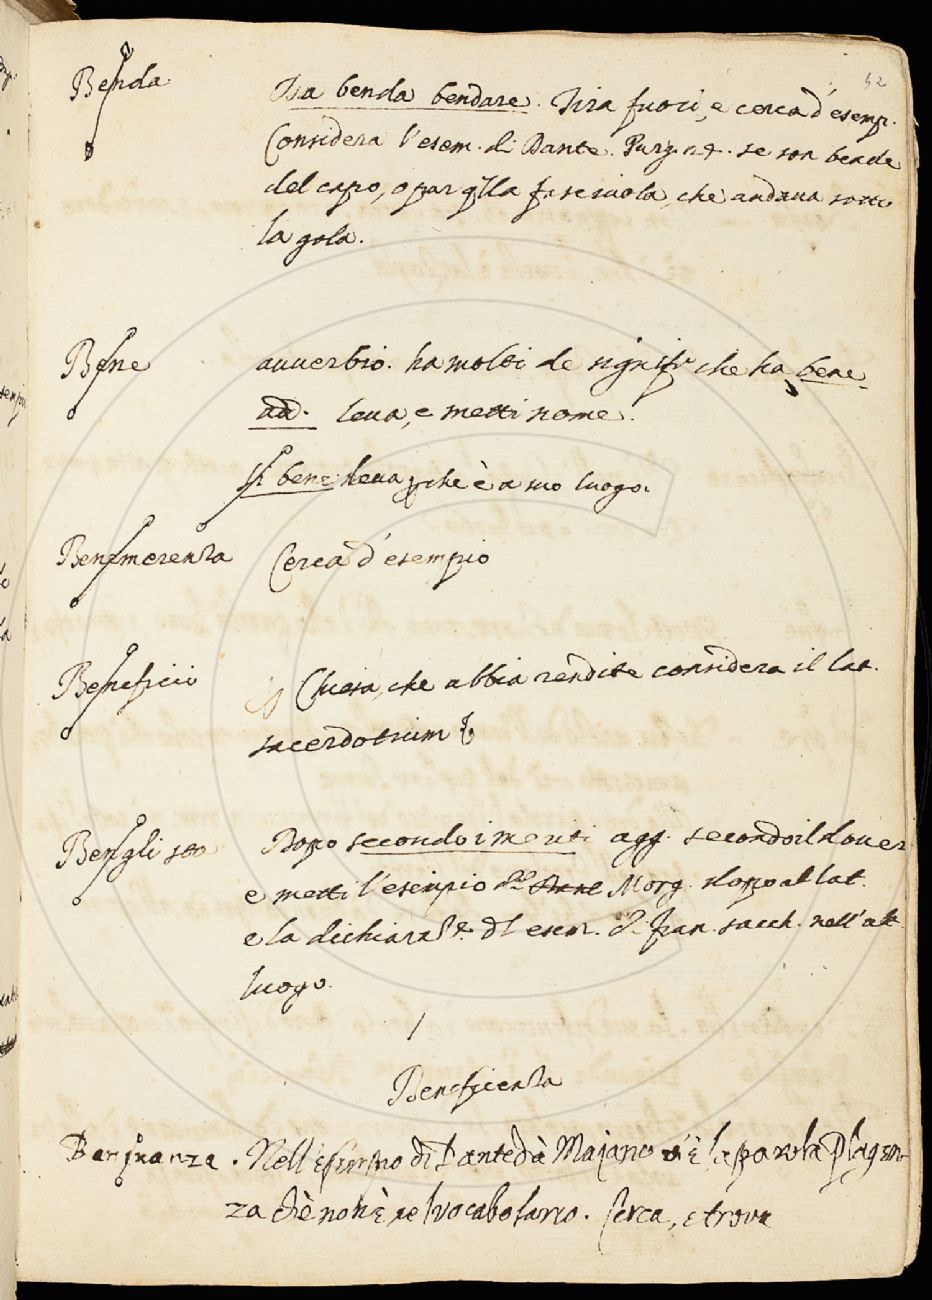 52
Benda
La benda bendare. Tira fuori, e cerca d'esemp.
Considera l'esem. di Dante. Purg. 24. se son bende
del capo, o par qlla fasciuola, che andava sotto
la gola.
Bene
avverbio. ha molti de signifi. che ha bene
ad. leva, e metti nome.
Si bene leva, che è a suo luogo.
Benemerenza
Cerca d'esempio
Beneficio
Chiesa, che abbia rendite considera il lat.
sacerdotium
Bersaglio
Dopo secondo i menti agg. secondo il dover
e metti l'esempio Morg. dopo al lat.
e la dichiaraz. dl esem. d. fran. sacch. nell' alt.
luogo.
Beneficenza
Benfranza. Nell'esempio di Dante dà Majano v'è la parola Plagen-
za chè non è nel vocabolario. Cerca, e trova